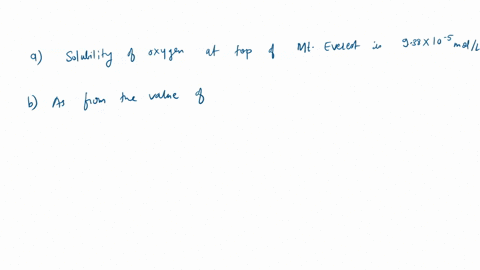 a) Solubility of oxygen at top of Mt. Everest is 9.38 × 10⁻⁵ mol/L
b) As from the value of